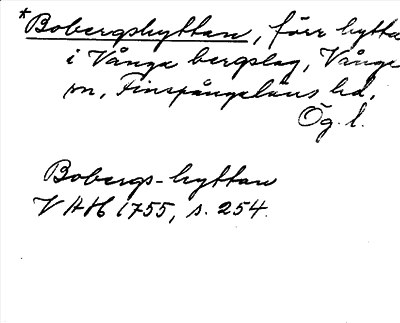 *Bobergshyttan, förr hytta
i Vånga bergslag, Vånga
sn, Finspångaläns hd,
Ög. l.
Bobergs-hyttan
VAH 1755, s. 254.